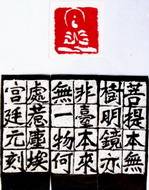 菩提本無
樹明鏡亦
非臺本來
無一物何
處惹塵埃
宫廷元刻